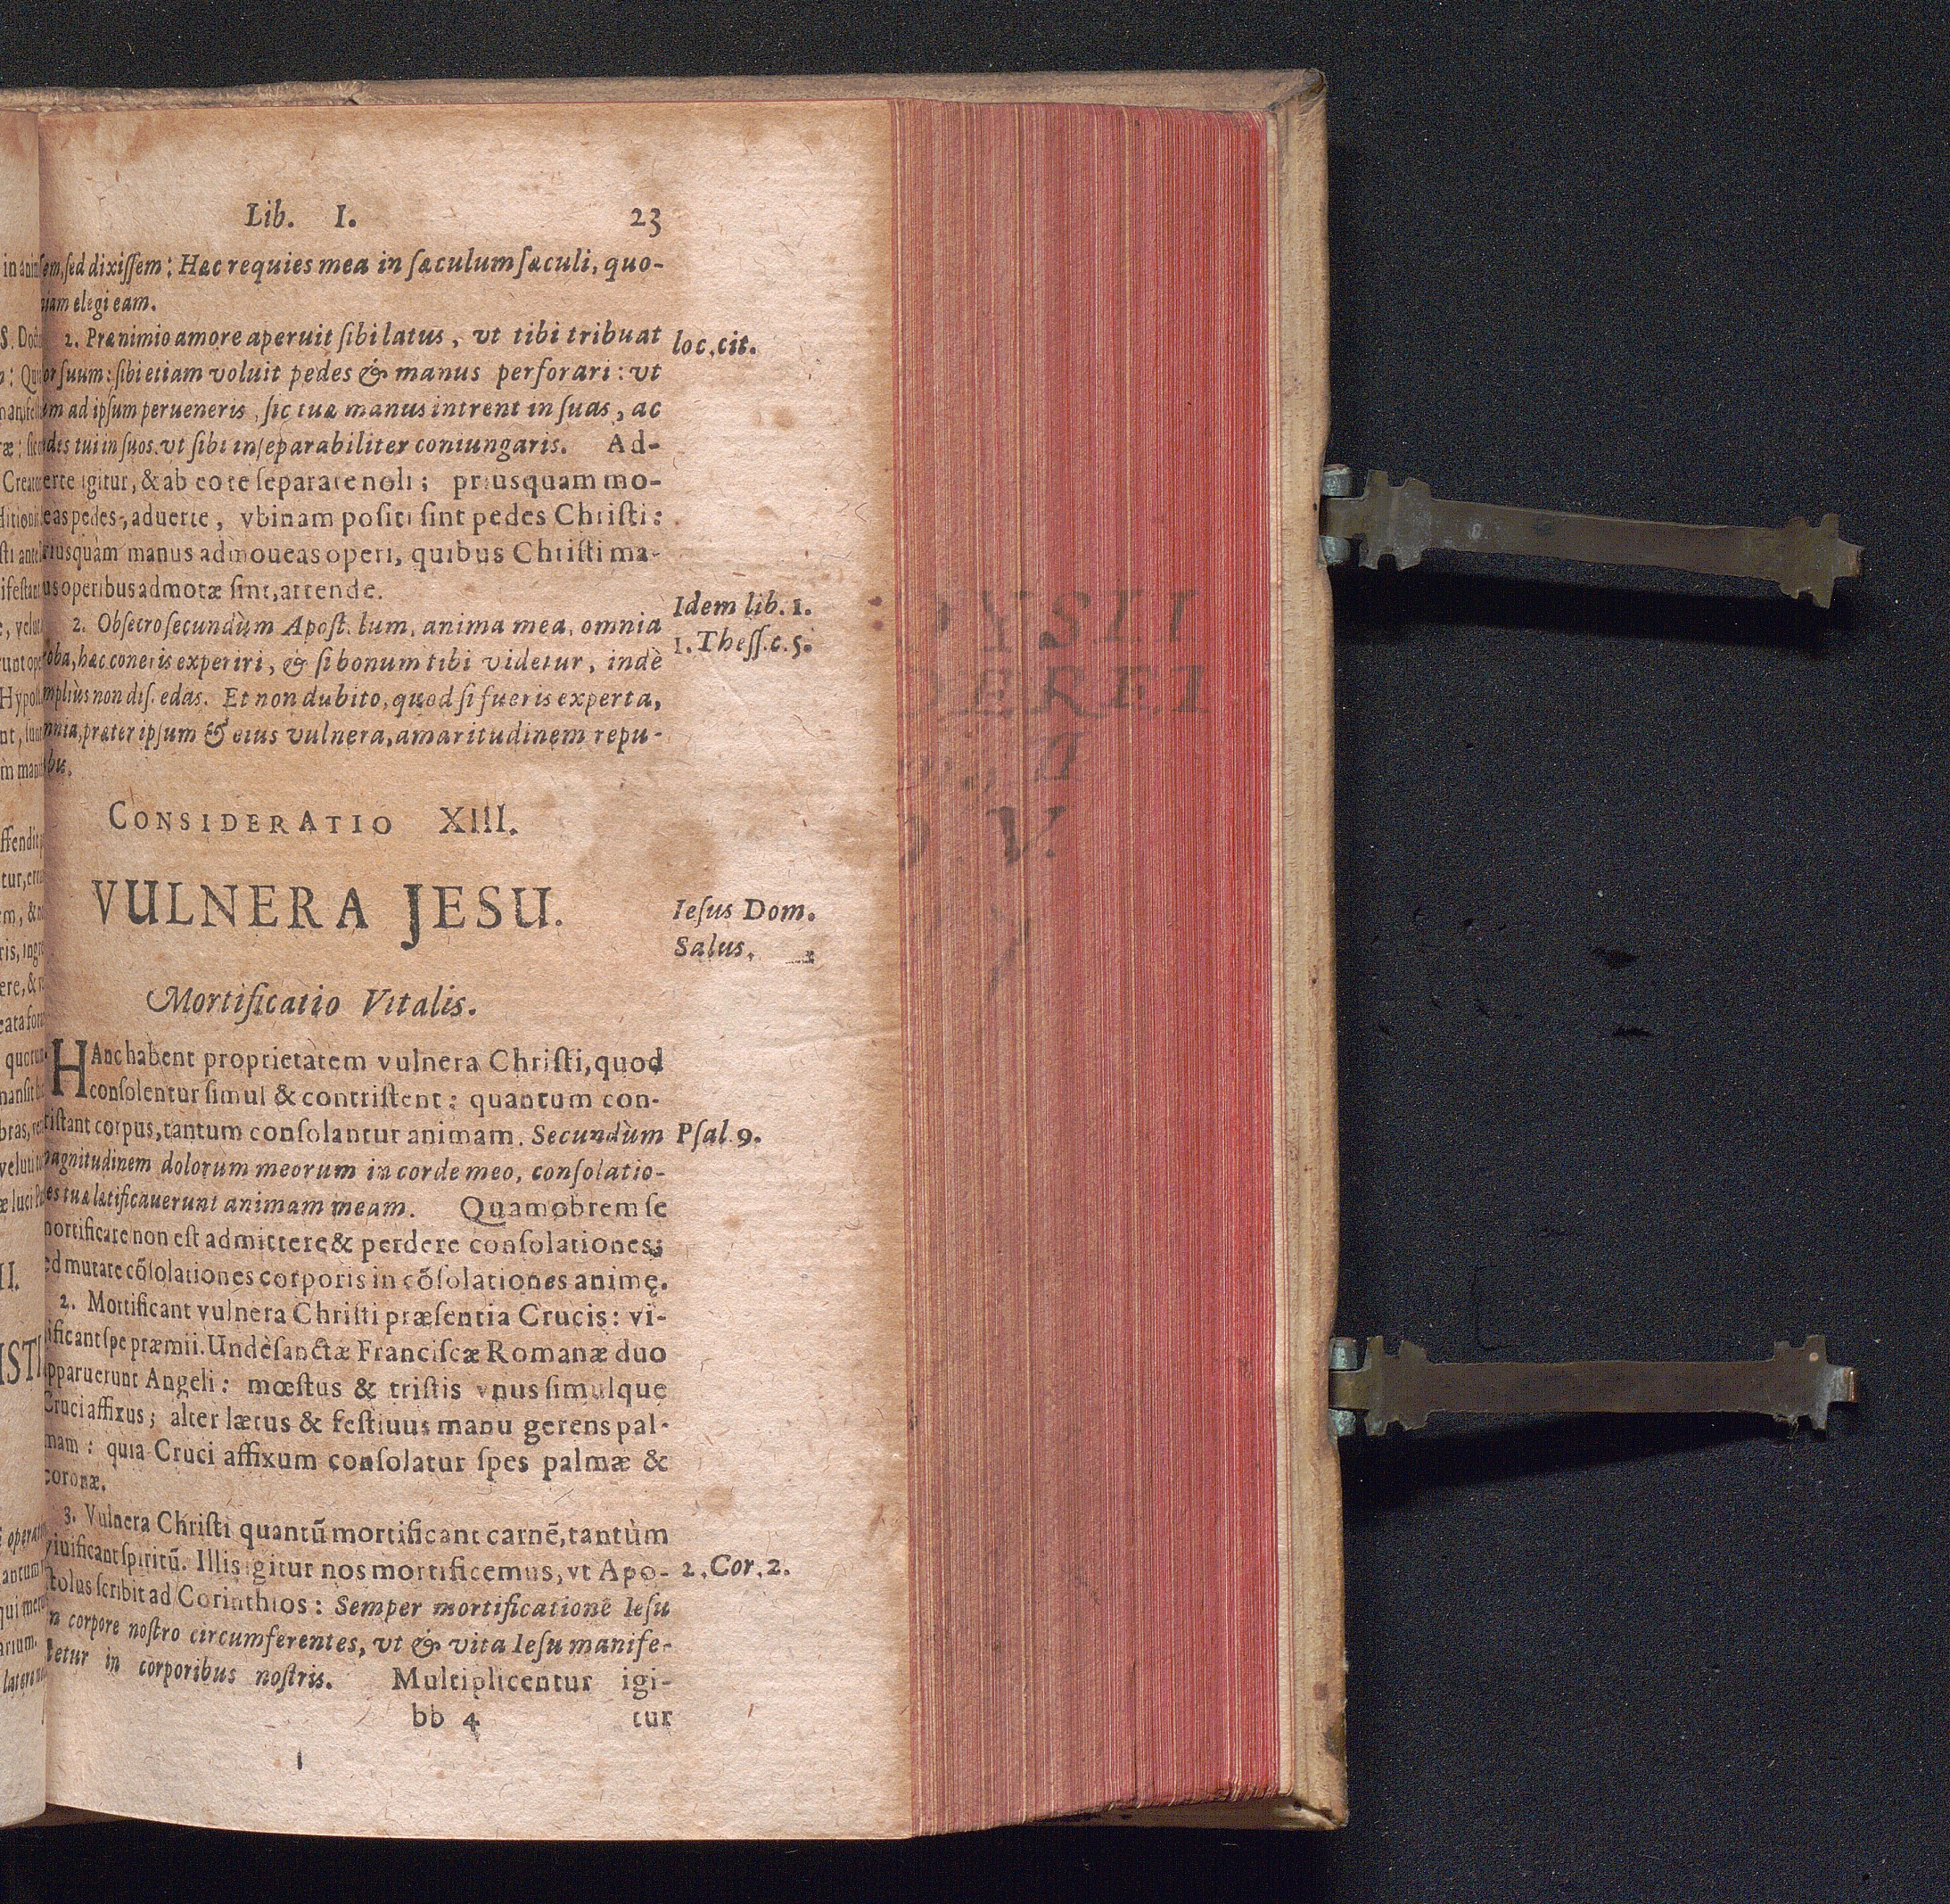 Lib. I. 23
em, sed dixissem: Hæc requies mea in sæculum sæculi, quo-
niam elegi eam.
2. Præ nimio amore aperuit sibi latus, vt tibi tribuat loc. cit.
cor suum: sibi etiam voluit pedes & manus perforari: vt
cùm ad ipsum perueneris, sic tuæ manus intrent in suas, ac
pedes tui in suos. vt sibi inseparabiliter coniungaris. Ad-
uerte igitur, & ab eo te separare noli; priusquam mo-
ueas pedes, aduerte, vbinam positi sint pedes Christi:
priusquàm manus admoueas operi, quibus Christi ma-
nus operibus admotæ sint, attende.
2. Obsecro secundùm Apost. lum, anima mea, omnia Idem lib. 1.
proba, hæc coneris experiri, & si bonum tibi videtur, indè 1. Thess. c. 5.
ampliùs non dis. edas. Et non dubito, quod si fueris experta,
omnia, præter ipsum & eius vulnera, amaritudinem repu-
tabis.
CONSIDERATIO XIII.
VULNERA JESU. Iesus Dom.
Salus.
Mortificatio Vitalis.
HAnc habent proprietatem vulnera Christi, quod
consolentur simul & contristent: quantum con-
tristant corpus, tantum consolantur animam. Secundùm Psal. 9.
magnitudinem dolorum meorum in corde meo, consolatio-
nes tuæ lætificauerunt animam meam. Quamobrem se
mortificare non est admittere & perdere consolationes;
sed mutare cõsolationes corporis in cõsolationes animę.
2. Mortificant vulnera Christi præsentia Crucis: vi-
uificant spe præmii. Undè sanctæ Franciscæ Romanæ duo
apparuerunt Angeli: mœstus & tristis vnus simulque
Cruci affixus; alter lætus & festiuus manu gerens pal-
mam: quia Cruci affixum consolatur spes palmæ &
coronæ.
3. Vulnera Christi quantũ mortificant carnẽ, tantùm
viuificant spiritũ. Illis igitur nos mortificemus, vt Apo- 2. Cor. 2.
stolus scribit ad Corinthios: Semper mortificationẽ Iesu
in corpore nostro circumferentes, vt & vita Iesu manife-
stetur in corporibus nostris. Multiplicentur igi-
bb 4 tur